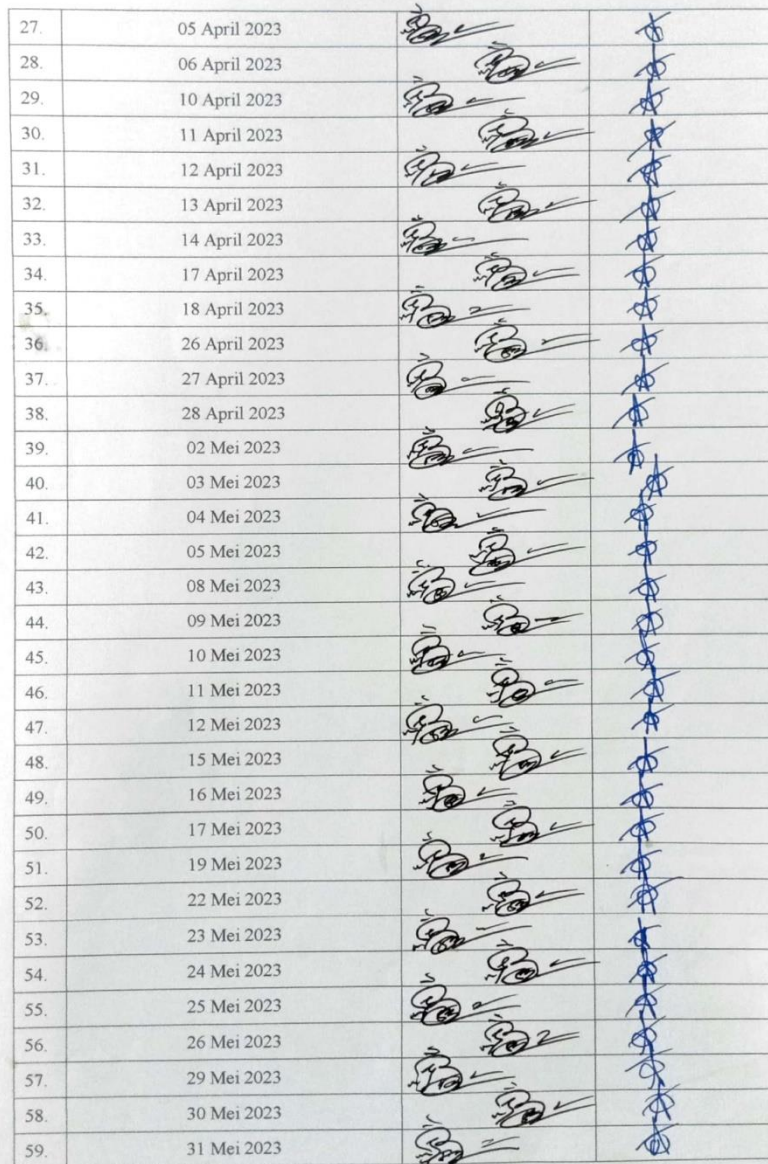 27. 05 April 2023
28. 06 April 2023
29. 10 April 2023
30. 11 April 2023
31. 12 April 2023
32. 13 April 2023
33. 14 April 2023
34. 17 April 2023
35. 18 April 2023
36. 26 April 2023
37. 27 April 2023
38. 28 April 2023
39. 02 Mei 2023
40. 03 Mei 2023
41. 04 Mei 2023
42. 05 Mei 2023
43. 08 Mei 2023
44. 09 Mei 2023
45. 10 Mei 2023
46. 11 Mei 2023
47. 12 Mei 2023
48. 15 Mei 2023
49. 16 Mei 2023
50. 17 Mei 2023
51. 19 Mei 2023
52. 22 Mei 2023
53. 23 Mei 2023
54. 24 Mei 2023
55. 25 Mei 2023
56. 26 Mei 2023
57. 29 Mei 2023
58. 30 Mei 2023
59. 31 Mei 2023